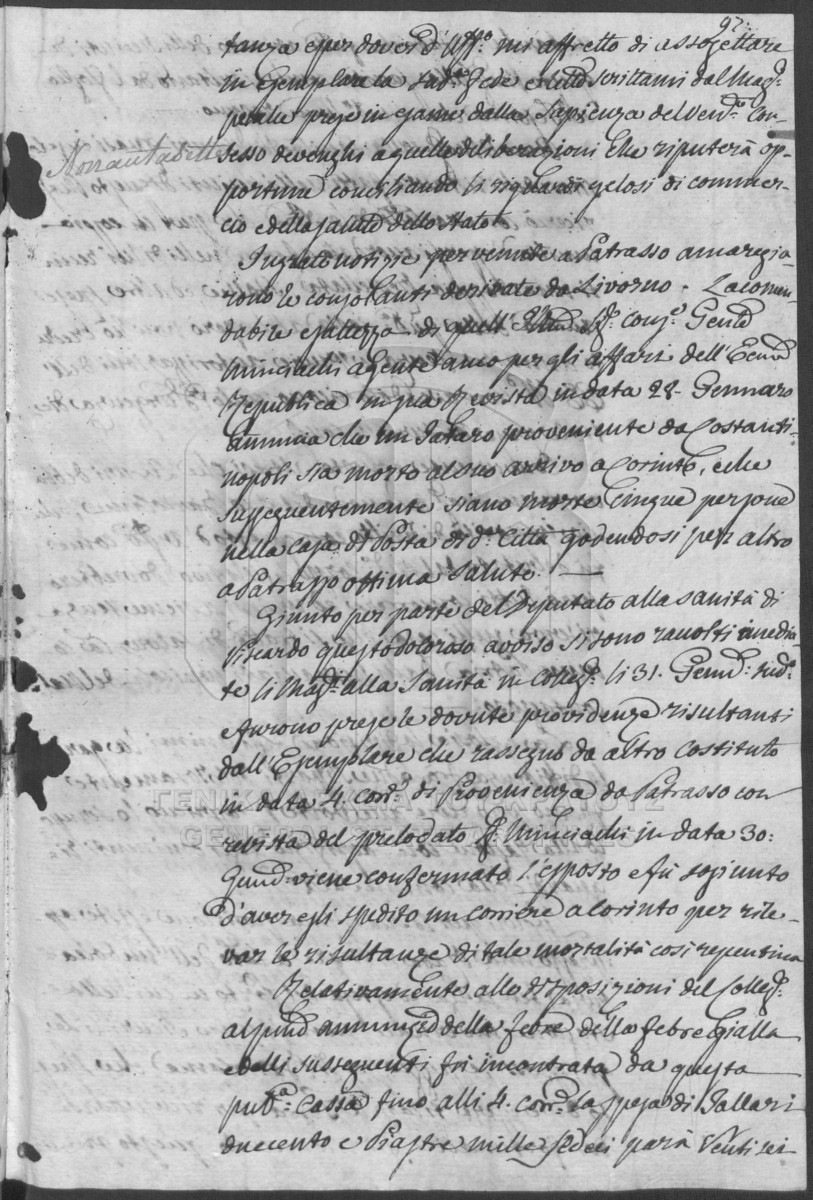 97.
tanza e per dover d'Uff.º mi affretto di assogettare
in Esemplare la sud.ª Fede e scrittami dal Mag.
perche prese in esame dalla Sapienza del Ven.º Con-
sesso devenghi a quelle deliberazioni che riputerà op-
portune conciliando li riguardi gelosi di commer-
cio e della salute dello Stato.
Ingrate notizie pervenute a Patrasso amaregia-
rono le consolanti derivate da Livorno. La comen-
dabile esatezza di quell' Sig. Cons.e Gen.le
Minciachi agente anco per gli affari dell'
Republica in sua Revista in data 28. Gennaro
annuncia che un Tataro proveniente da Costanti-
nopoli sia morto al suo arrivo a Corinto, e che
susseguentemente siano morte cinque persone
nella casa di Posta di d.ª Città godendosi per altro
a Patrasso ottima salute. —
Giunto per parte del Deputato alla sanità di
Viscardo questo doloroso avviso si sono racolti imedia-
te li Mag. alla Sanità in Colleg. li 31. Genn. sud.º
e furono prese le dovute providenze risultanti
dall'Esemplare che rassegno da altro costituto
in data 4. corr. di Provenienza da Patrasso con
revista del prelodato Sig. Minciachi in data 30:
viene confermato l'esposto e fù sogiunto
d'aver egli spedito un corriere a Corinto per rile-
var le risultanze di tale mortalità così repentina
Relativamente alle disposizioni del Colleg.
al della febre della febre Gialla
e delli susseguenti fù incontrata da questa
pub.ª Cassa fino alli 4. corr. la spesa di Tallari
duecento e Piastre mille sedeci parà Venti sei
ΓΕΝΙΚΑ ΑΡΧΕΙΑ ΤΟΥ ΚΡΑΤΟΥΣ
GENERAL STATE ARCHIVES